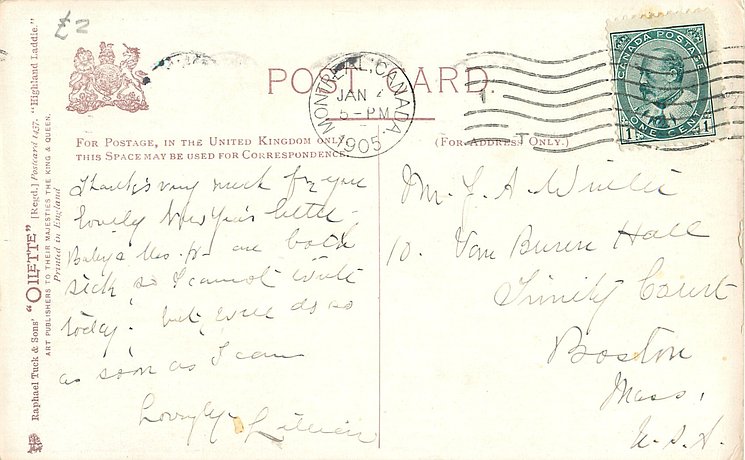 £2
POST CARD.
CANADA POSTAGE
1 ONE CENT 1
MONTREAL, CANADA.
JAN
5-PM
1905
FOR POSTAGE, IN THE UNITED KINGDOM ONLY,
THIS SPACE MAY BE USED FOR CORRESPONDENCE.
(FOR ADDRESS ONLY.)
Raphael Tuck & Sons' "OILETTE" [Regd.] Postcard 1437. "Highland Laddie."
ART PUBLISHERS TO THEIR MAJESTIES THE KING & QUEEN.
Printed in England
Thanks very much for your
lovely New Year's letter -
Baby & are both
sick so I cannot write
today. but will do so
as soon as I can
Lovingly
Mr. J. A.
10. Van Buren Hall
Trinity Court
Boston
Mass.
U.S.A.